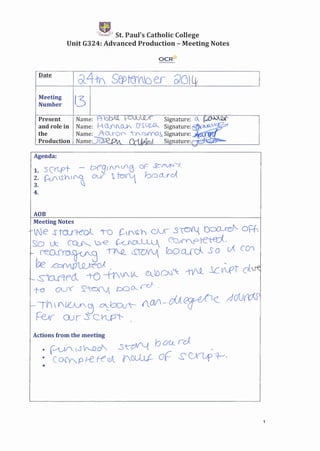 St. Paul's Catholic College
Unit G324: Advanced Production – Meeting Notes
OCR
Date
24th September 2014
Meeting
Number
13
Present
and role in
the
Production
Name: Abbie Signature: a
Name: Hannah Signature:
Name: Aaron Thomas Signature:
Name: Signature:
Agenda:
1. Script – beginning of script
2. finishing our story board
3.
4.
AOB
Meeting Notes
- We started to finish our story board off,
so it can be finally completed.
- rearranging the story board so it can
be completed.
- started to think about the script due
to our story board.
- Thinking about non-diegetic sounds
for our script.
Actions from the meeting
• finished story board
• completed half of script.
•
1